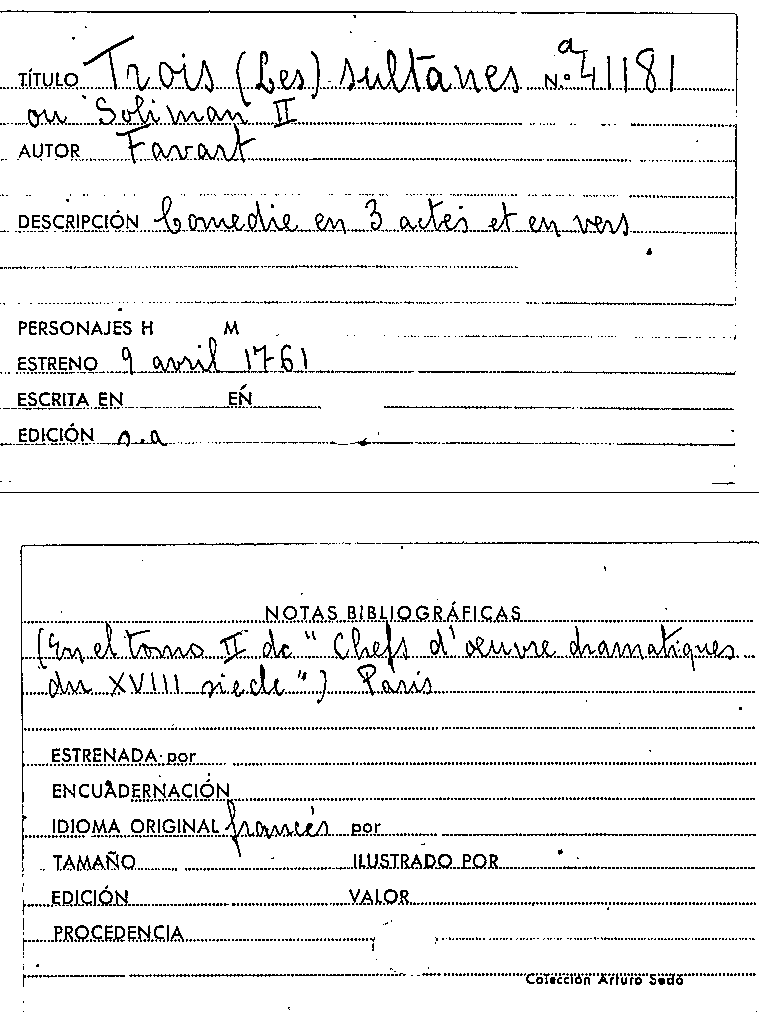 TÍTULO Trois (Les) sultanes N.º a 41181
ou Soliman II
AUTOR Favart
DESCRIPCIÓN Comedie en 3 actes et en vers
PERSONAJES H M
ESTRENO 9 avril 1761
ESCRITA EN EN
EDICIÓN s.a
NOTAS BIBLIOGRÁFICAS
(En el tomo II de "Chefs d'œuvre dramatiques
du XVIII siecle") Paris
ESTRENADA por
ENCUADERNACIÓN
IDIOMA ORIGINAL francés por
TAMAÑO ILUSTRADO POR
EDICIÓN VALOR
PROCEDENCIA
Colección Arturo Sedó